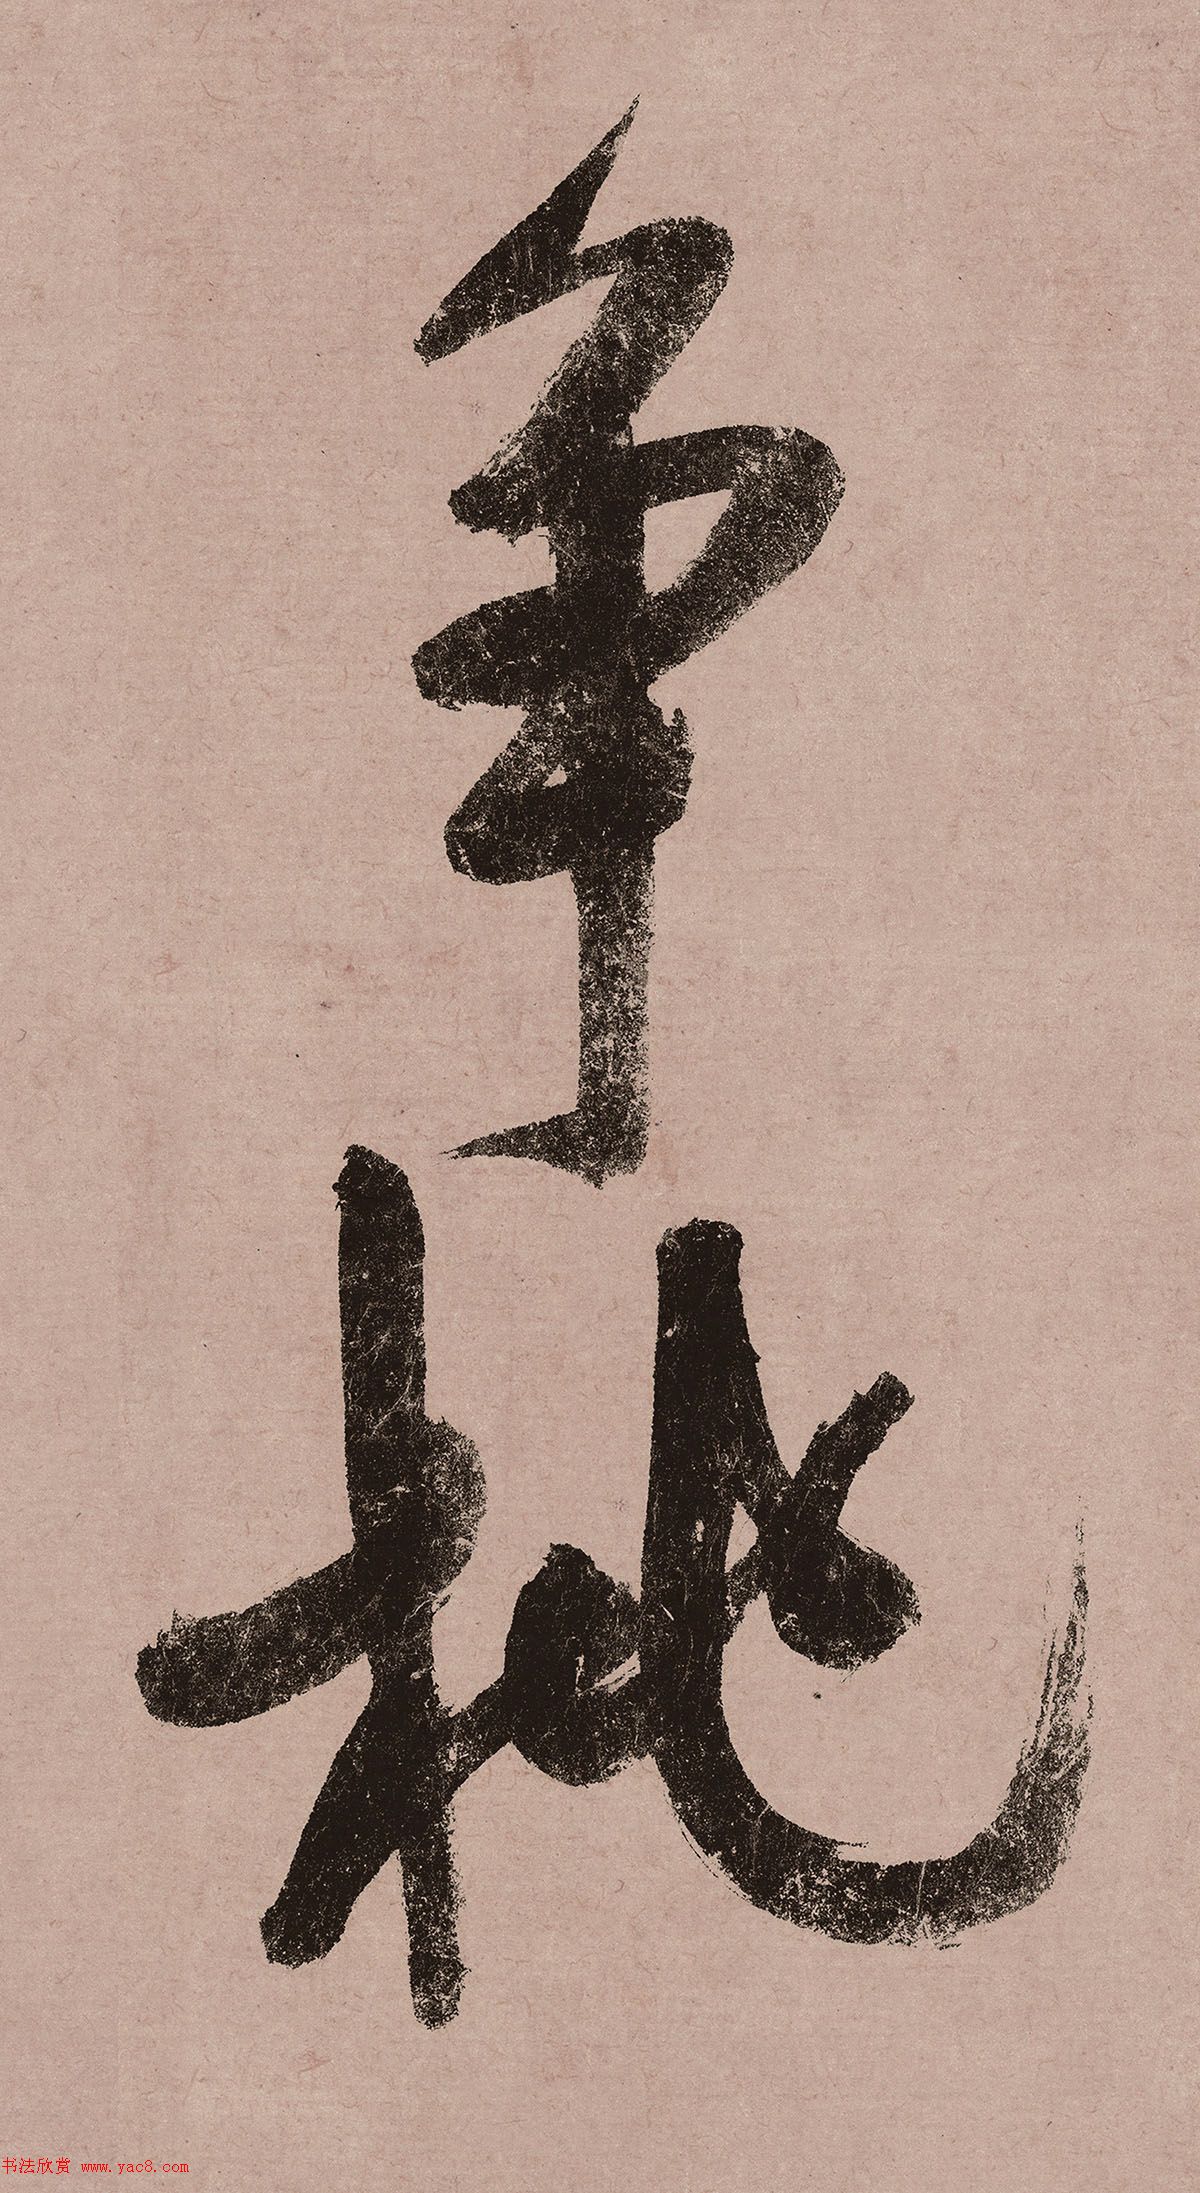 争桃
书法欣赏 www.yac8.com